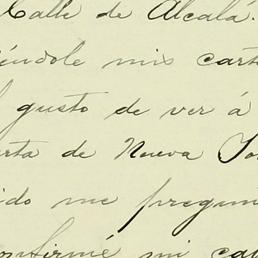 Calle de Alcalá.
éndole mis cart
l gusto de ver á
rta de Nueva Yo
ido me pregun
onfirmé mi ca